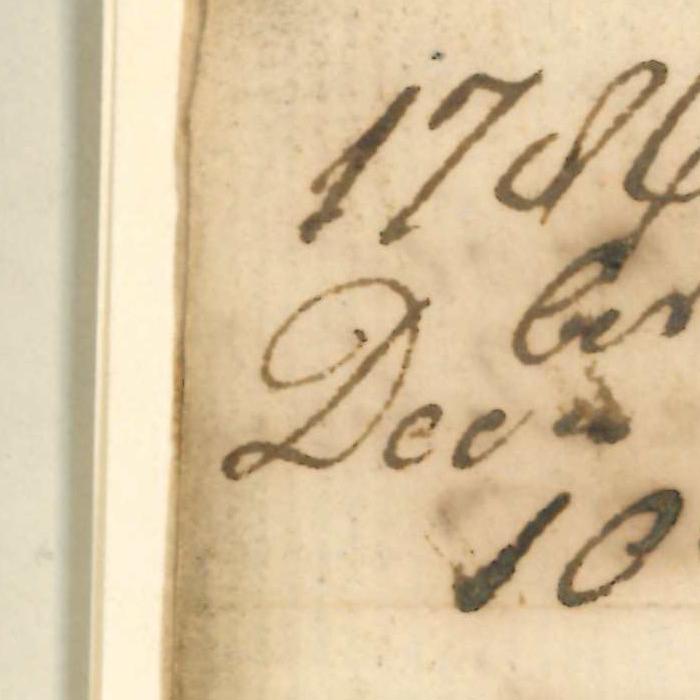 1786
ber
Dec
10